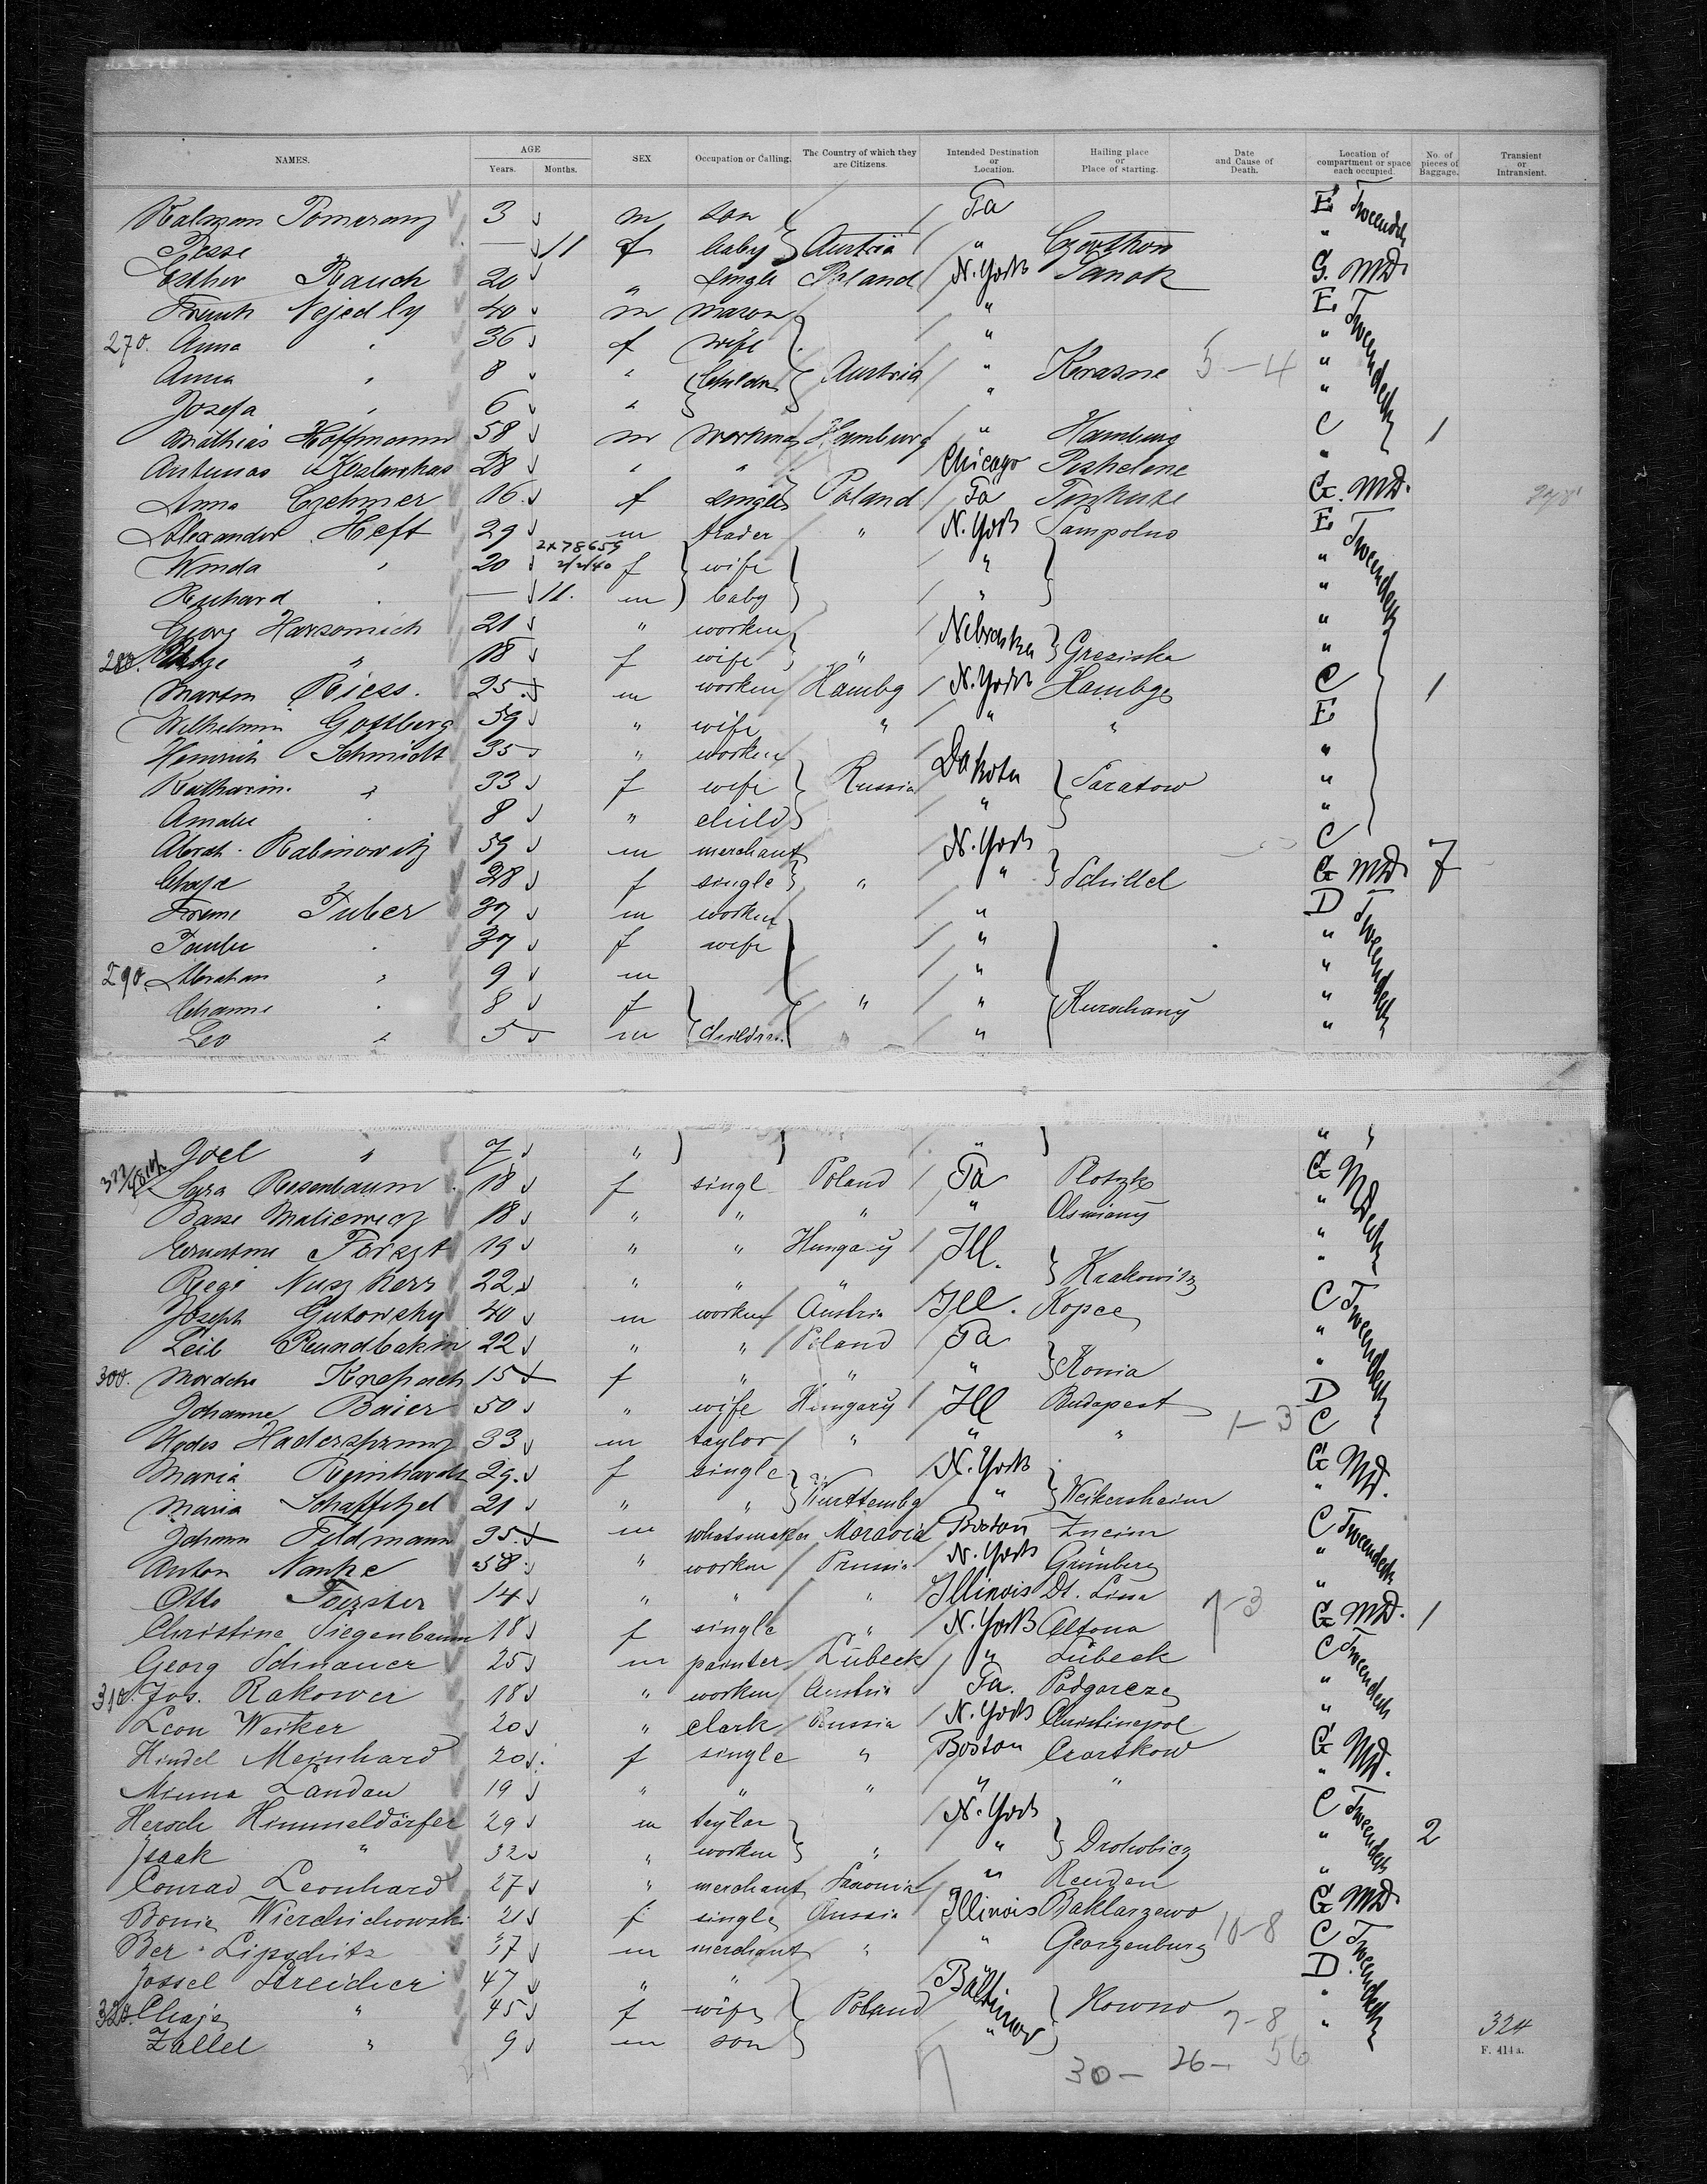 NAMES. AGE Years. Months. SEX Occupation or Calling. The Country of which they are Citizens. Intended Destination or Location. Hailing place or Place of starting. Date and Cause of Death. Location of compartment or space each occupied. No. of pieces of Baggage. Transient or Intransient.
Kalman Pomeranz 3 m son Pa E Tweendeck
Pesse — 11 f baby Austria " "
Esther Rauch 20 " single Poland N. York Sanok G. MD.
Frank Nejedly 40 m mason " E Tweendeck
270. Anna " 36 f wife " "
Anna " 8 " Children Austria " Krasne 5-4 "
Josefa " 6 " " "
Mathias Hoffmann 58 m workman Hamburg " Hamburg C 1
Antunas 28 " " Chicago "
Anna Czehmer 16 f single Poland Pa G. MD.
Alexander Heft 29 m trader " N. York Sampolno E Tweendeck
2x78659
2/2/40
Wanda " 20 f wife " "
Richard " — 11. m baby " "
Georg 21 " worker Nebraska "
280. " 18 f wife " Greziska "
Martin Riess. 25 m worker Hambg N. York Hambg C 1
Wilhelmin Gottberg 59 " wife " " " E
Heinrich Schmidt 35 " worker Dakota "
Katharin. " 33 f wife Russia Saratow "
Amalie " 8 " child " "
Abrah. Rabinowitz 59 m merchant N. York C
Chaje 28 f single " " Schillel G MD 7
Froime Tuber 37 m worker " D Tweendeck
Taube " 37 f wife " "
290. Abraham " 9 m " "
Channe " 8 f " " Kurschany "
Leo " 5 m children. " "
Joel " 7 " " "
Sara Rosenbaum 18 f single Poland Pa Plotzk G MDeck
Basse Maliewicz 18 " " " " Osmiany "
Ernestine 19 " " Hungary Ill. "
Regi 22 " " " Krakowitz "
Joseph Gutowsky 40 m worker Austria Ill. Kopce C Tweendeck
Leib 22 " " Poland Pa "
300. Mordche 15 f " " " Konia "
Johanne Baier 50 " wife Hungary Ill Budapest D
33 m taylor " " " 1-3 C
Maria Reinhardt 29. f single N. York G MD.
Maria Schaffitzel 21 " " Württembg " Weikersheim "
Johann Feldmann 35. m Moravia Boston Zneim C Tweendeck
Anton Nanke 58 " worker Prussia N. York Grünberg "
Otto Foerster 14 " " " Illinois Dt. Lissa "
Christine Siegenbaum 18 f single " N. York Altona 7-3 G MD. 1
Georg Schnauer 25 m painter Lübeck " Lübeck C Tweendeck
310. Jos. Rakower 18 " worker Austria Pa. Podgorcze "
Leon Weiker 20 " clark Russia N. York Christinepol "
Hindel Meinhard 20 f single " Boston Czortkow G MD.
Minna Landau 19 " " " " " "
Hersch Himmeldörfer 29 m taylor N. York C Tweendeck
Isaak " 32 " worker " " Drohobicz " 2
Conrad Leonhard 27 " merchant Saxonia " Reuden "
Bonia Wierchichowski 21 f single Russia Illinois Baklarzewo G MD
Ber. Lipschitz 37 m merchant " " Georgenburg 10-8 C Tweendeck
Jossel Streicher 47 " " Baltimore D
320. Chaje " 45 f wife Poland Kowno "
Zallel " 9 m son " 7-8 "
324
F. 414 a.
30— 26— 56